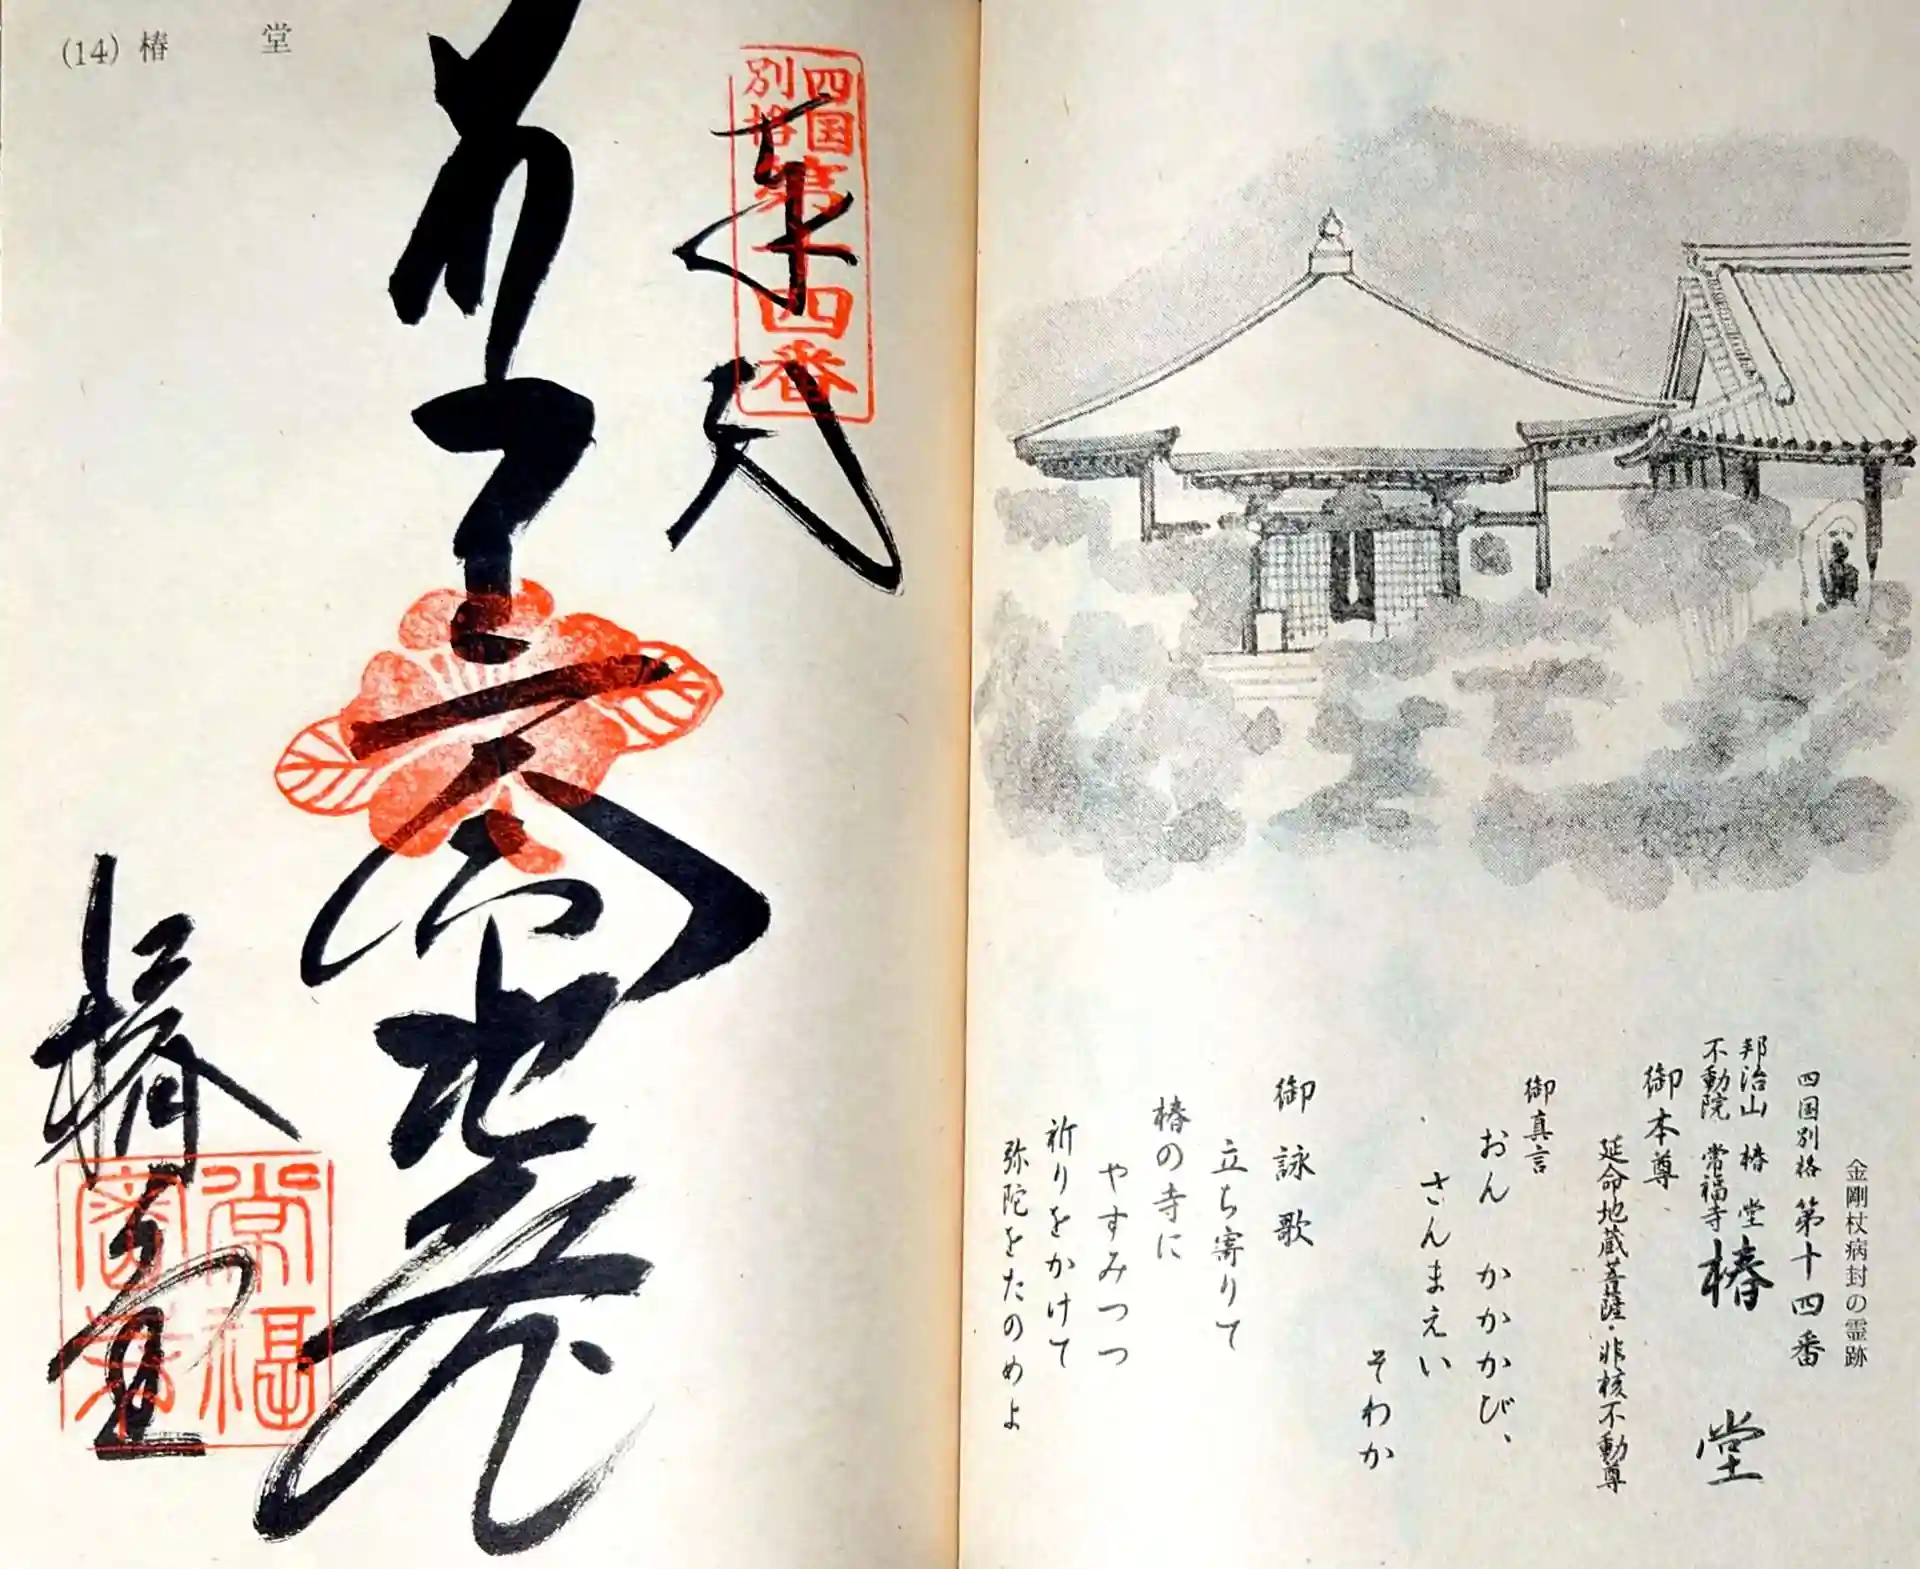 金剛杖病封の霊跡
四国別格 第十四番
邦治山 椿堂
不動院 常福寺
椿堂
御本尊
延命地蔵菩薩・非核不動尊
御真言
おん かかかび、
さんまえい
そわか
御詠歌
立ち寄りて
椿の寺に
やすみつつ
祈りをかけて
弥陀をたのめよ
(14) 椿 堂
四国
別格
第十四番
奉
椿堂
常福